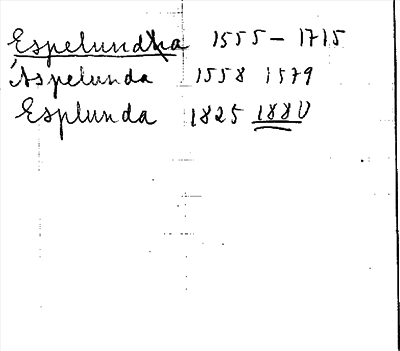 Espelundha 1555 - 1715
Aspelunda 1558 1579
Esplunda 1825 1880